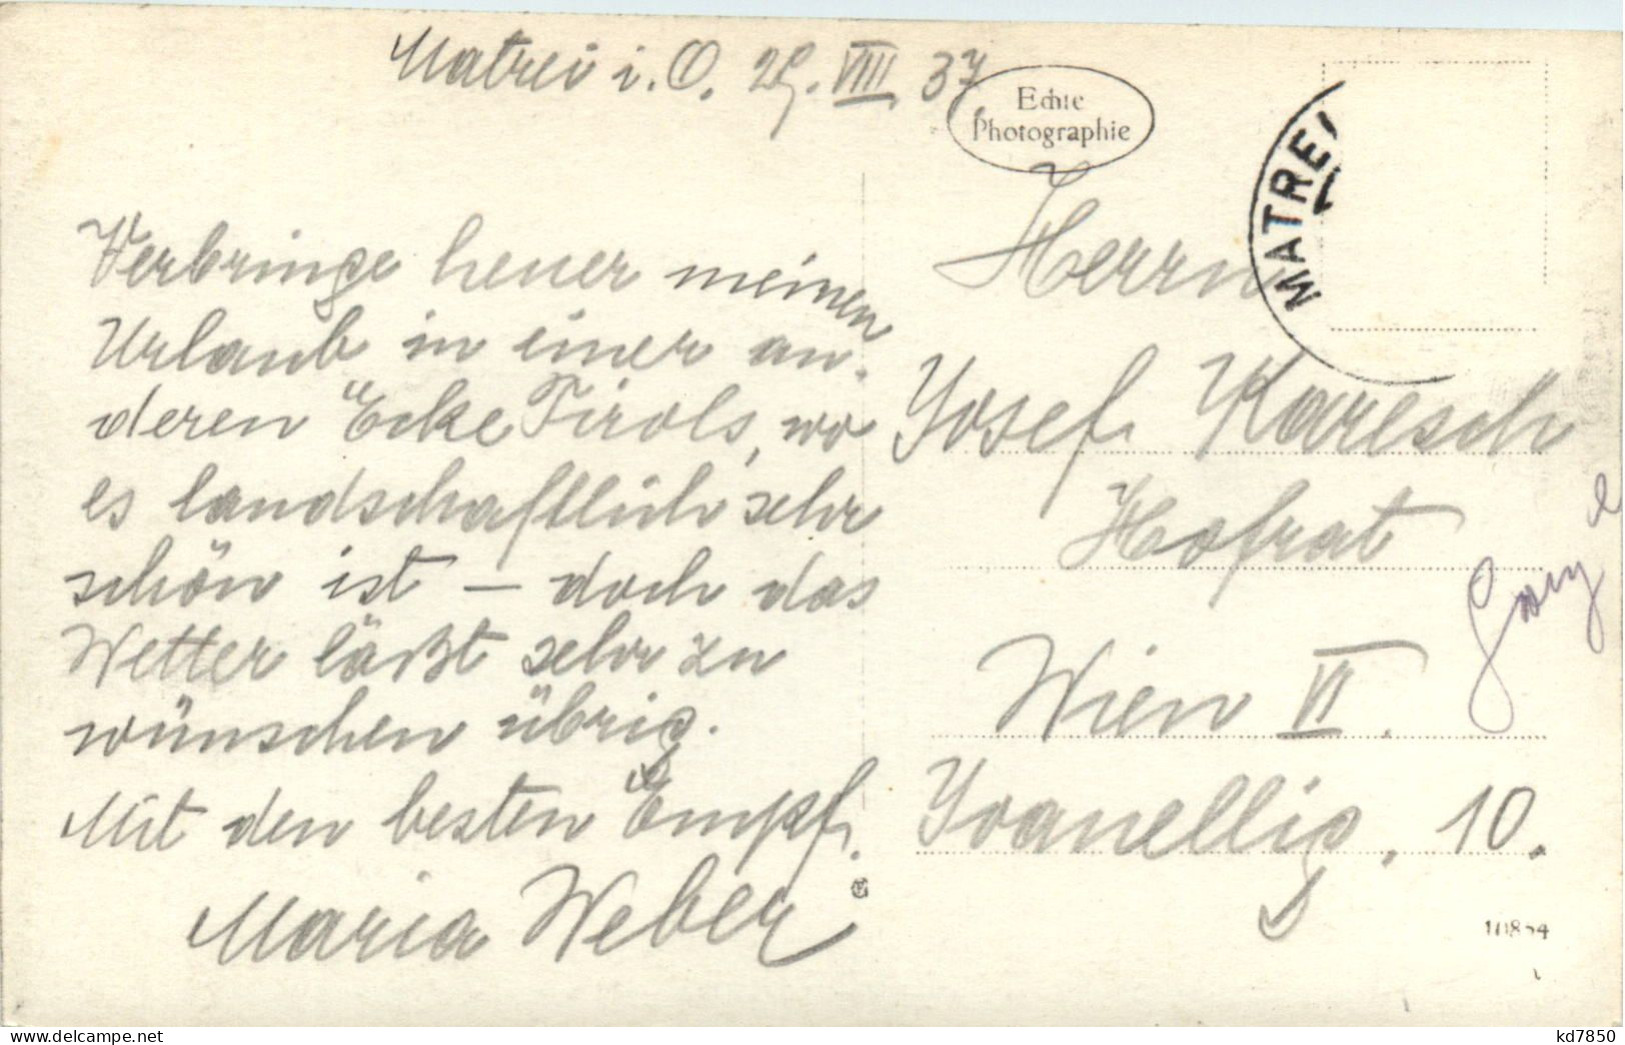 Matrei i. O. 29. VIII. 37.
Echte
Photographie
MATREI
Verbringe heuer meinen
Urlaub in einer an-
deren Ecke Tirols, wo
es landschaftlich sehr
schön ist — doch das
Wetter läßt sehr zu
wünschen übrig.
Mit den besten Empf.
Maria Weber
Herrn
Josef Karesch
Hofrat
Wien VI.
10.
www.delcampe.net
kd7850